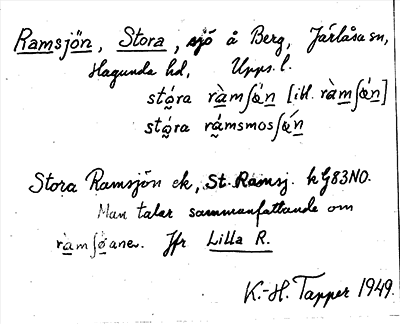 Ramsjön, Stora, sjö å Berg, Järlåsa sn,
Hagunda hd, Upps. l.
stó̰ra ràmʃǿn [ibl. ràmʃǿn]
stó̰ra rámsmosʃǿn
Stora Ramsjön ek, St. Ramsj. kG83NO.
Man talar sammanfattande om
ràmʃøane. Jfr Lilla R.
K.-H. Tapper 1949.